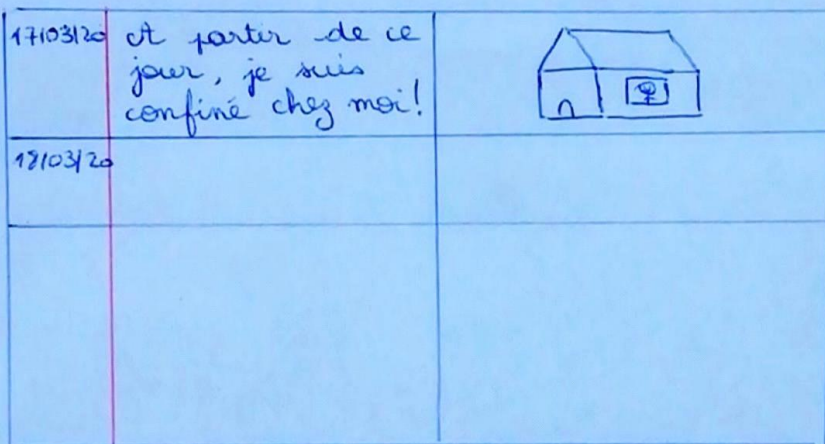 17/03/20
A partir de ce
jour, je suis
confiné chez moi!
18/03/20